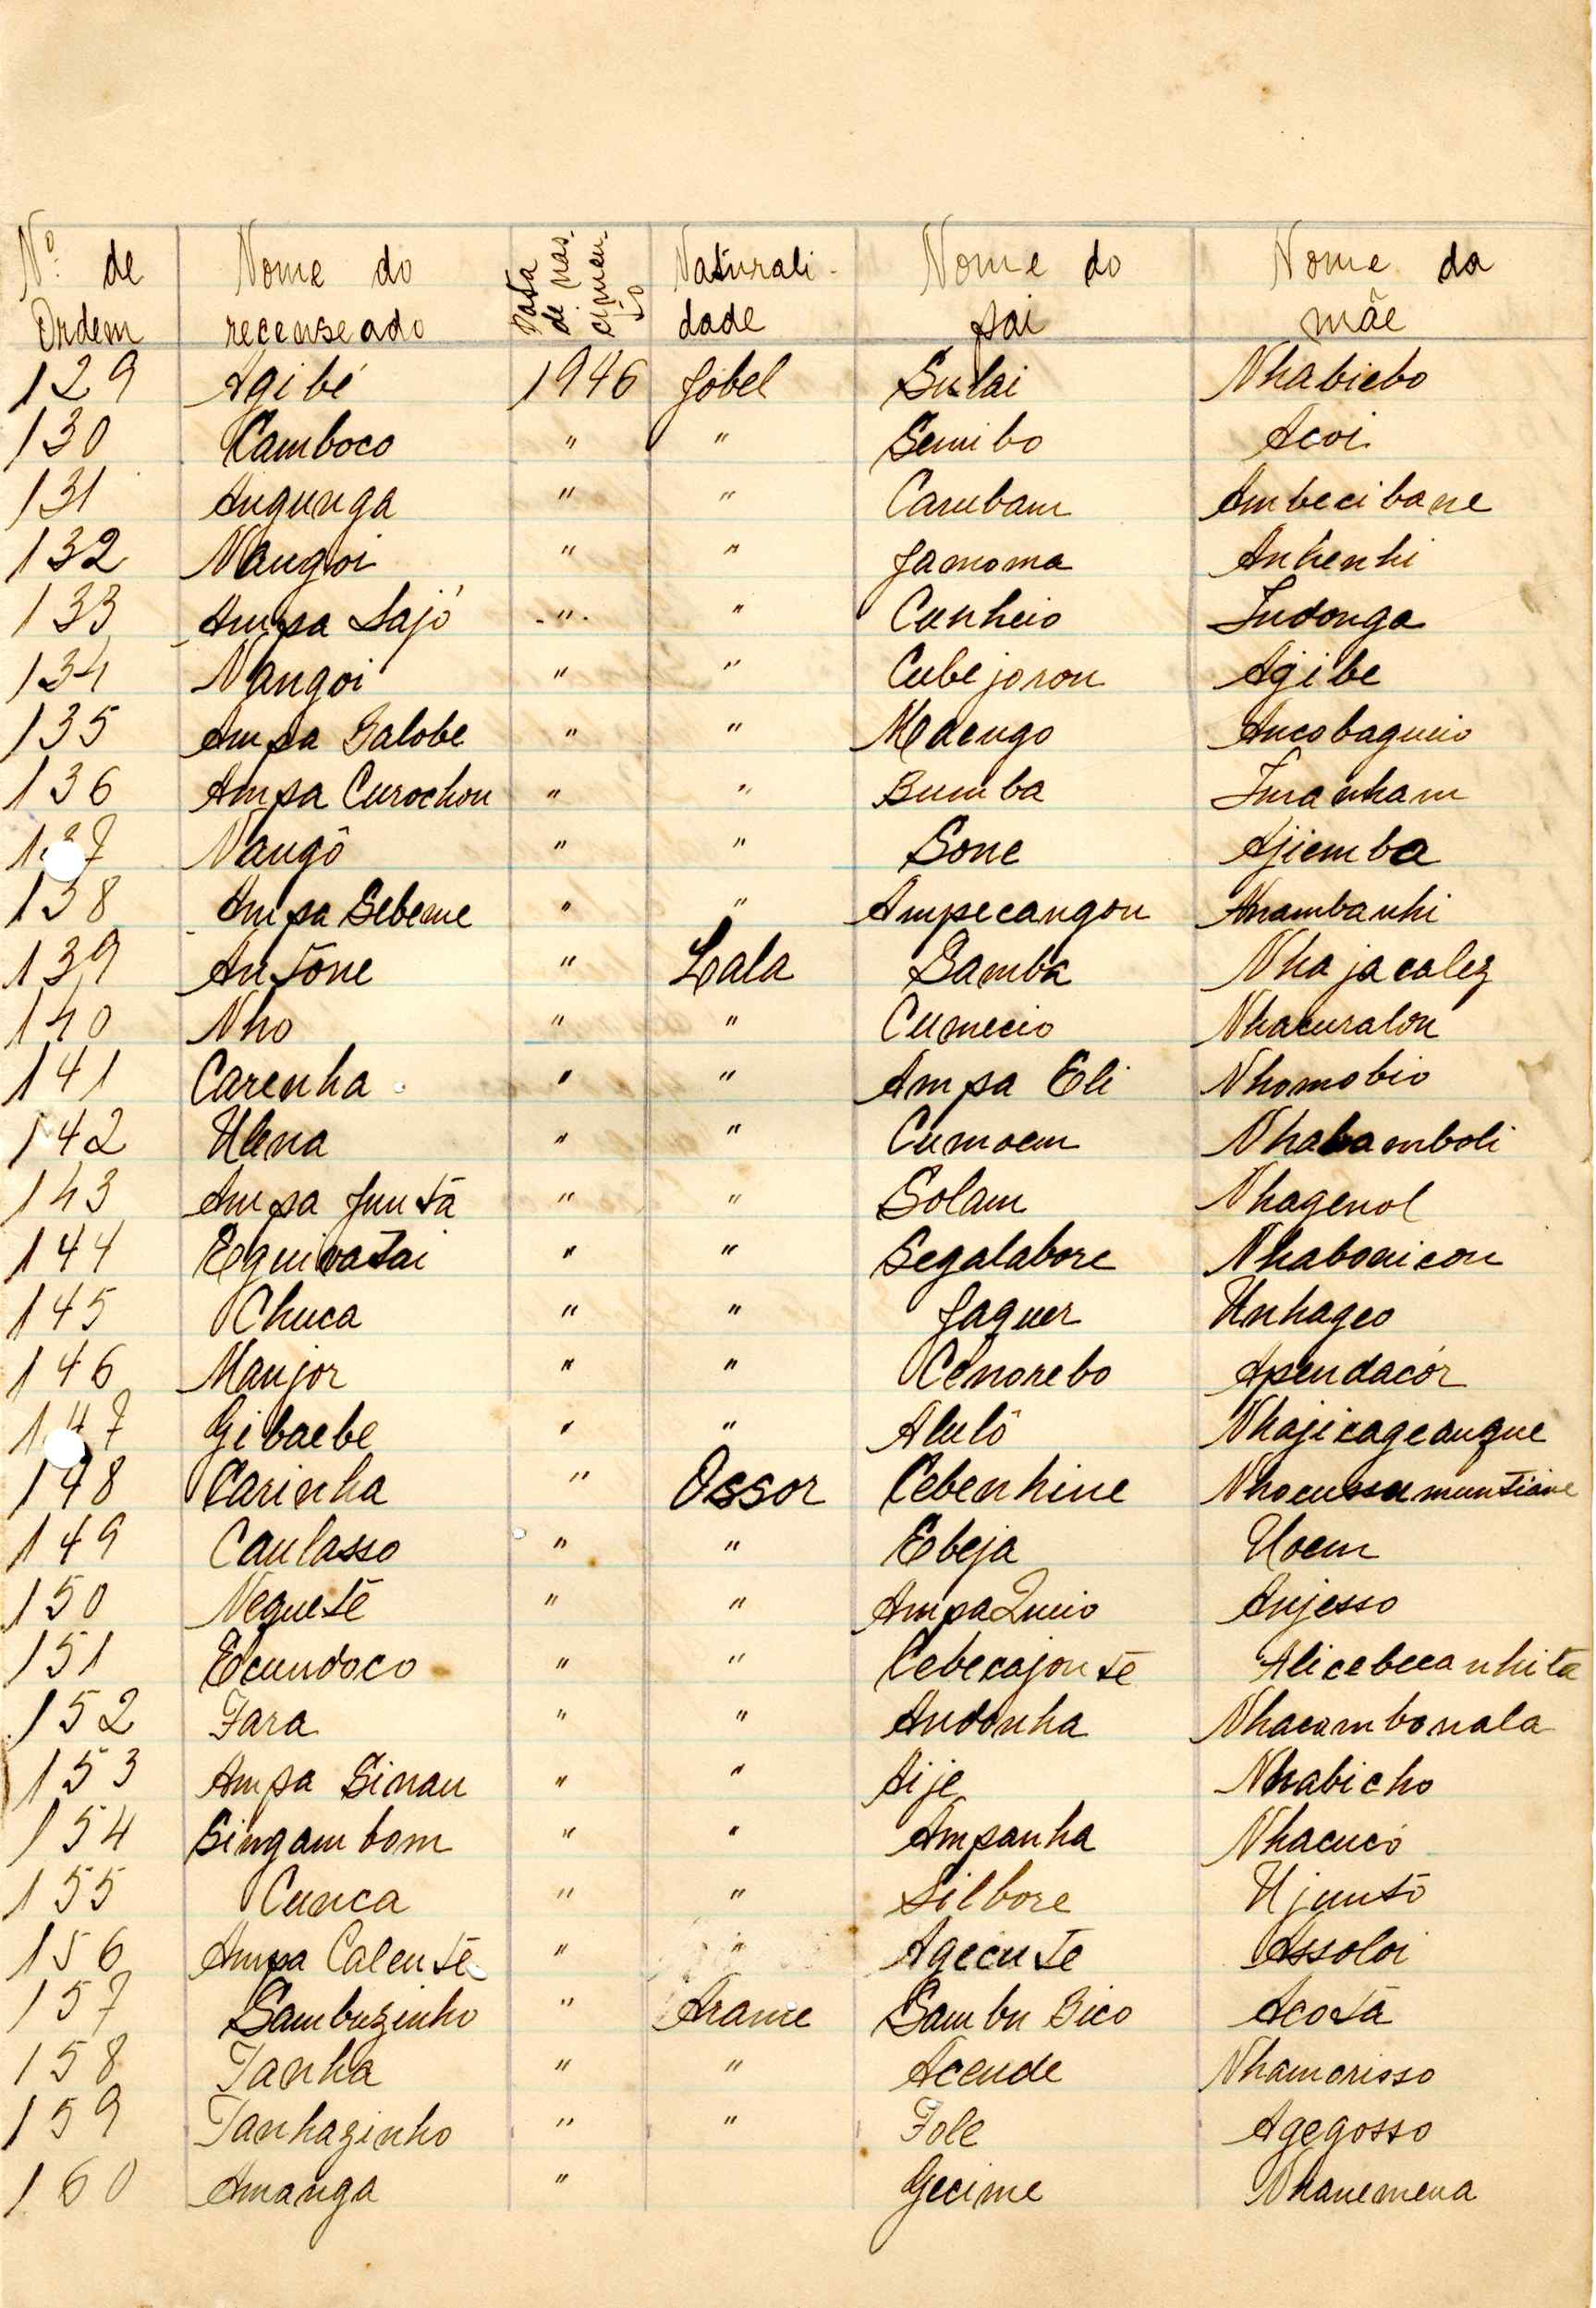 Nº de Ordem Nome do recenseado Data de nascimento Naturalidade Nome do pai Nome da mãe
129 Agibé 1946 Jobel Sulai Nhabiebo
130 Camboco " " Semibo Acoi
131 Angunga " " Carubam Ambecibane
132 Nangoi " " Jamoma Anhenhi
133 Ampa Sajó " " Canheio Indonga
134 Nangoi " " Cubejoron Agibe
135 Ampa Galobe " " Maengo Ancobagueio
136 Ampa Curochon " " Bumba Imanham
137 Nangô " " Sone Ajiemba
138 Ampa Sebeme " " Ampecangon Anambanhi
139 Antône " Lala Samba Nhajacalez
140 Nho " " Cumecio Nhacuralon
141 Carenha " " Ampa Eli Nhomobio
142 Ulena " " Cumoem Nhabamboli
143 Ampa Juntã " " Solam Nhagenol
144 Equivatai " " Segalabore Nhabonicon
145 Chuca " " Jaguer Unhageo
146 Manjor " " Cenorebo Apendacór
147 Gibaebe " " Alulô Nhajicageangue
148 Carinha " Ossor Cebenhine
149 Caulasso " " Ebeja Uoem
150 Neguetê " " Ampa Queio Anjesso
151 Ecundoco " " Cebecajontê
152 Fara " " Andonha Nhacambonala
153 Ampa Sinau " " Aije Nhabicho
154 Singambom " " Ampanha Nhacucó
155 Cunca " " Silbore Ujuntõ
156 Ampa Calentê " " Agecute Assoloi
157 Sambuzinho " Arame Sambu Sico Acotã
158 Tanha " " Acende Nhamorisso
159 Tanhazinho " " Fole Agegosso
160 Amanga " Gecime Nhanemena